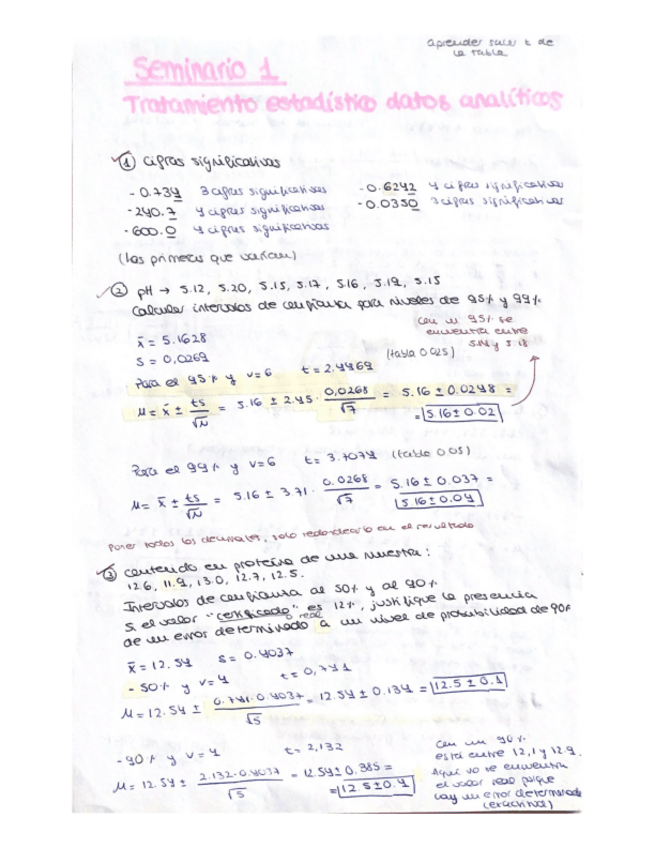 aprender sacar t de
la tabla
Seminario 1
Tratamiento estadístico datos analíticos
① cifras significativas
- 0.734 3 cifras significativas
- 240.7 4 cifras significativas
- 600.0 4 cifras significativas
- 0.6242 4 cifras significativas
- 0.0350 3 cifras significativas
(Las primeras que varían)
② pH → 5.12, 5.20, 5.15, 5.17, 5.16, 5.19, 5.15
Calcular intervalos de confianza para niveles de 95% y 99%
x̄ = 5.1628
S = 0,0269
con un 95% se
encuentra entre
5.14 y 5.18
(tabla 0.025)
Para el 95% y v=6 t = 2.4469
μ = x̄ ± ts/√N = 5.16 ± 2.45 · 0,0268/√7 = 5.16 ± 0.0248 =
= 5.16 ± 0.02
Para el 99% y v=6 t = 3.7074 (tabla 0.05)
μ = x̄ ± ts/√N = 5.16 ± 3.71 · 0.0268/√7 = 5.16 ± 0.037 =
5.16 ± 0.04
Poner todos los decimales, solo redondearlo en el resultado
③ contenido en proteína de una muestra:
12.6, 11.9, 13.0, 12.7, 12.5.
Intervalos de confianza al 50% y al 90%
Si el valor "certificado" o real es 12%, justifique la presencia
de un error determinado a un nivel de probabilidad de 90%
x̄ = 12.54 S = 0.4037
- 50% y v=4 t = 0,741
μ = 12.54 ± 0.741·0.4037/√5 = 12.54 ± 0.134 = 12.5 ± 0.1
- 90% y v=4 t = 2,132
μ = 12.54 ± 2.132·0.4037/√5 = 12.54 ± 0.385 =
= 12.5 ± 0.4
con un 90%
está entre 12,1 y 12.9.
Aquí no se encuentra
el valor real porque
hay un error determinado
(exactitud)